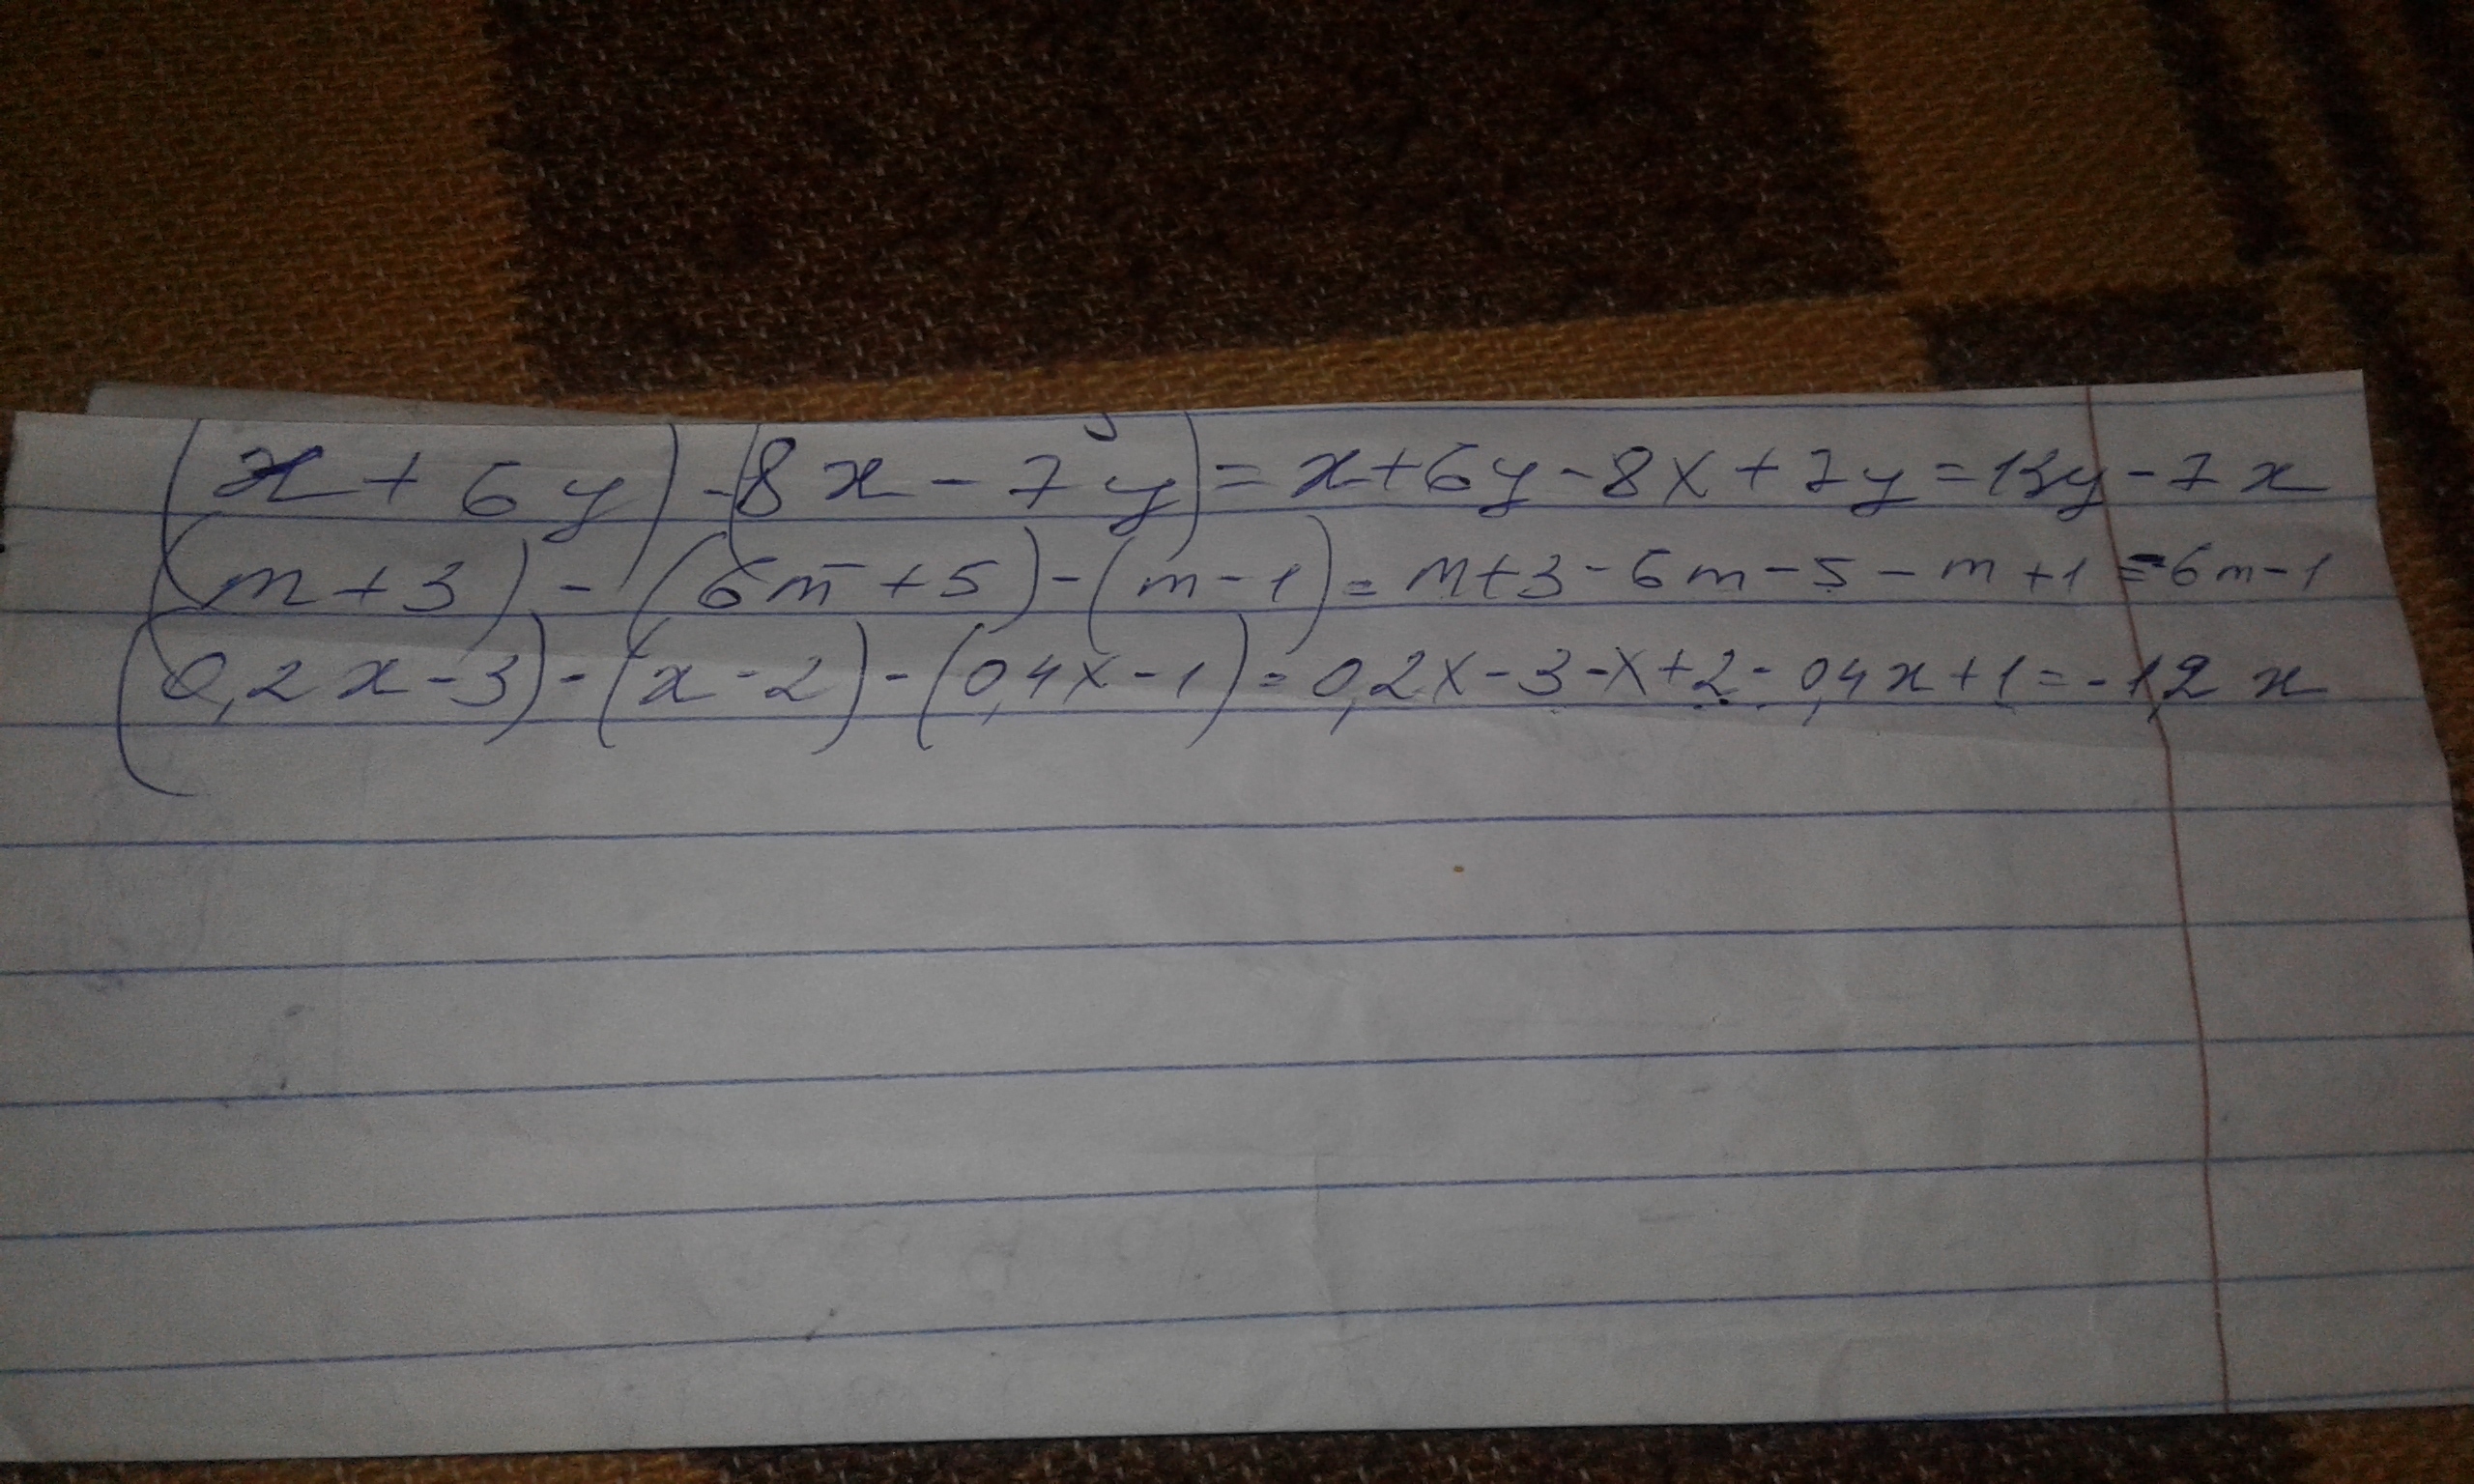 (x + 6y) - (8x - 7y) = x + 6y - 8x + 7y = 13y - 7x
(m + 3) - (6m + 5) - (m - 1) = m + 3 - 6m - 5 - m + 1 = -6m - 1
(0,2x - 3) - (x - 2) - (0,4x - 1) = 0,2x - 3 - x + 2 - 0,4x + 1 = -1,2x